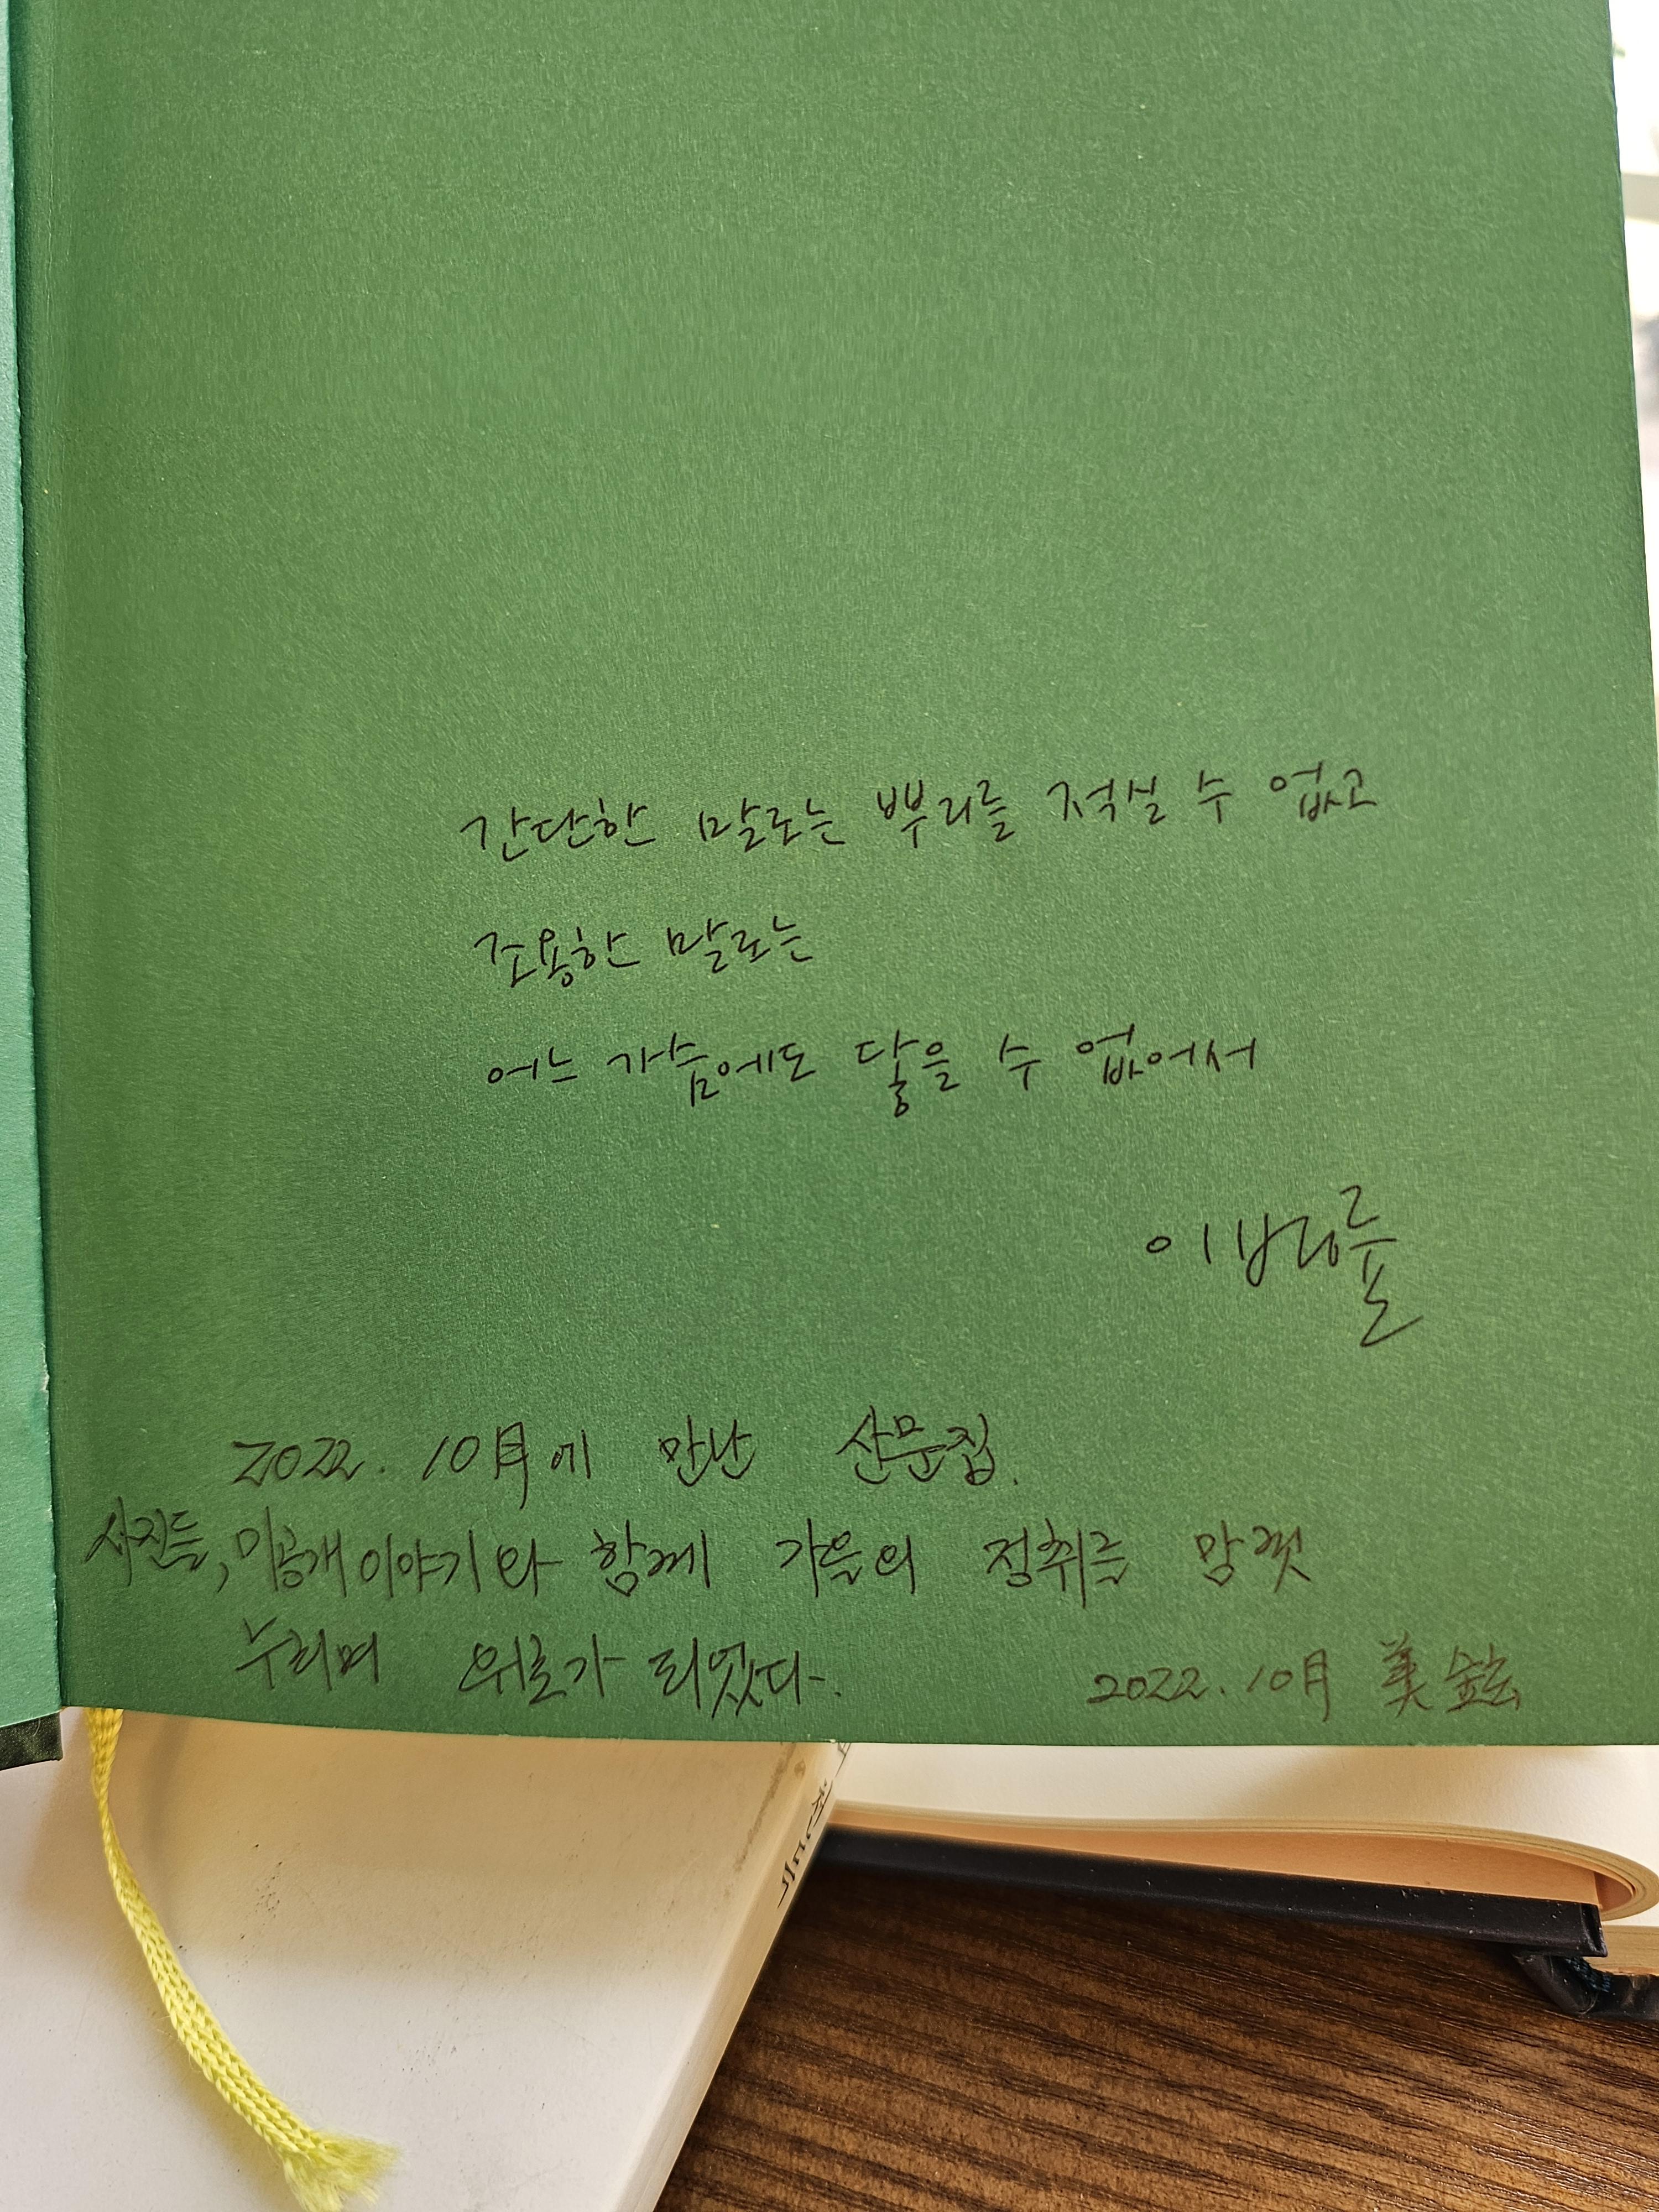 간단한 말로는 뿌리를 적실 수 없고
조용한 말로는
어느 가슴에도 닿을 수 없어서
이병률
2022. 10月에 만난 산문집.
사진들, 미공개 이야기와 함께 가을의 정취를 맘껏
누리며 위로가 되었다.
2022. 10月 美